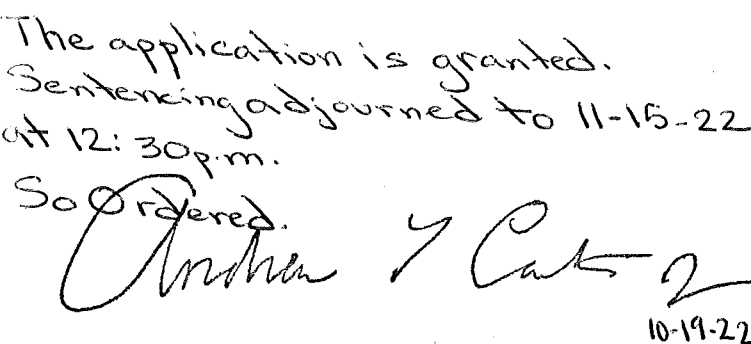 The application is granted.
Sentencing adjourned to 11-15-22
at 12:30p.m.
So Ordered.
Andrew
10-19-22